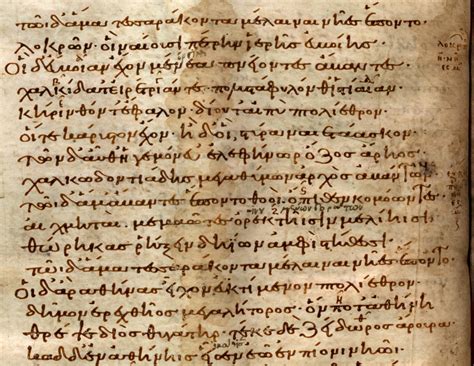 τῶι δ' ἅμα τεσσαράκοντα μέλαιναι νῆες ἕποντο
λοκρῶν· οἳ ναίουσι πέρην ἱερῆς εὐβοίης·
Οἳ δ' εὔβοιαν ἔχον μένεα πνείοντες ἄβαντες
χαλκίδα τ' εἰρέτριάν τε· πολυστάφυλόν θ' ἱστίαιαν
κήρινθόν τ' ἔφαλον· δίου τ' αἰπὺ πτολίεθρον·
οἵ τε κάρυστον ἔχον· ἠδ' οἳ στύρα ναιετάασκον·
τῶν δ' αὖθ' ἡγεμόνευ' ἐλεφήνωρ ὄζος ἄρηος·
χαλκωδοντιάδης μεγαθύμων ἀρχὸς ἀβάντων·
τῶι δ' ἅμ' ἄβαντες ἕποντο θοοί· ὄπιθεν κομόωντες
αἰχμηταὶ· μεμαῶτες ὀρεκτῆισιν μελίηισι
θώρηκας ῥήξειν δηίων ἀμφὶ στήθεσσι·
τῶι δ' ἅμα τεσσαράκοντα μέλαιναι νῆες ἕποντο·
Οἳ δ' ἄρ' ἀθήνας εἶχον ἐϋκτίμενον πτολίεθρον·
δῆμον ἐρεχθῆος μεγαλήτορος· ὅν ποτ' ἀθήνη
θρέψε διὸς θυγάτηρ· τέκε δὲ ζείδωρος ἄρουρα·
κὰδ δ' ἐν ἀθήνηις εἷσεν ἑῶι ἐν πίονι νηῶι·